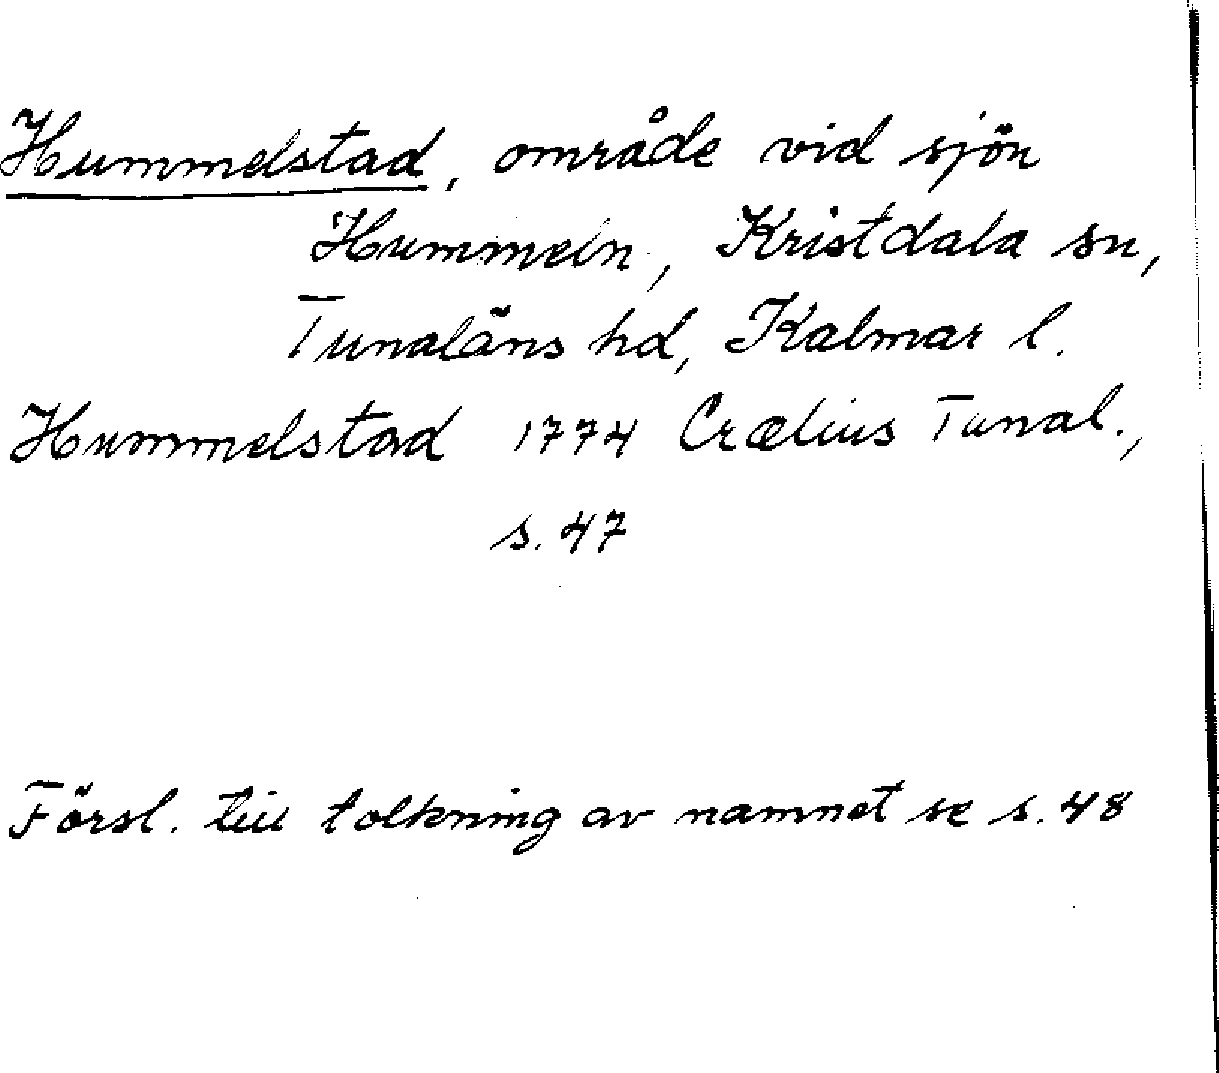 Hummelstad, område vid sjön
Hummeln, Kristdala sn,
Tunaläns hd, Kalmar l.
Hummelstad 1774 Crælius Tunal.,
s. 47
Försl. till tolkning av namnet se s. 48